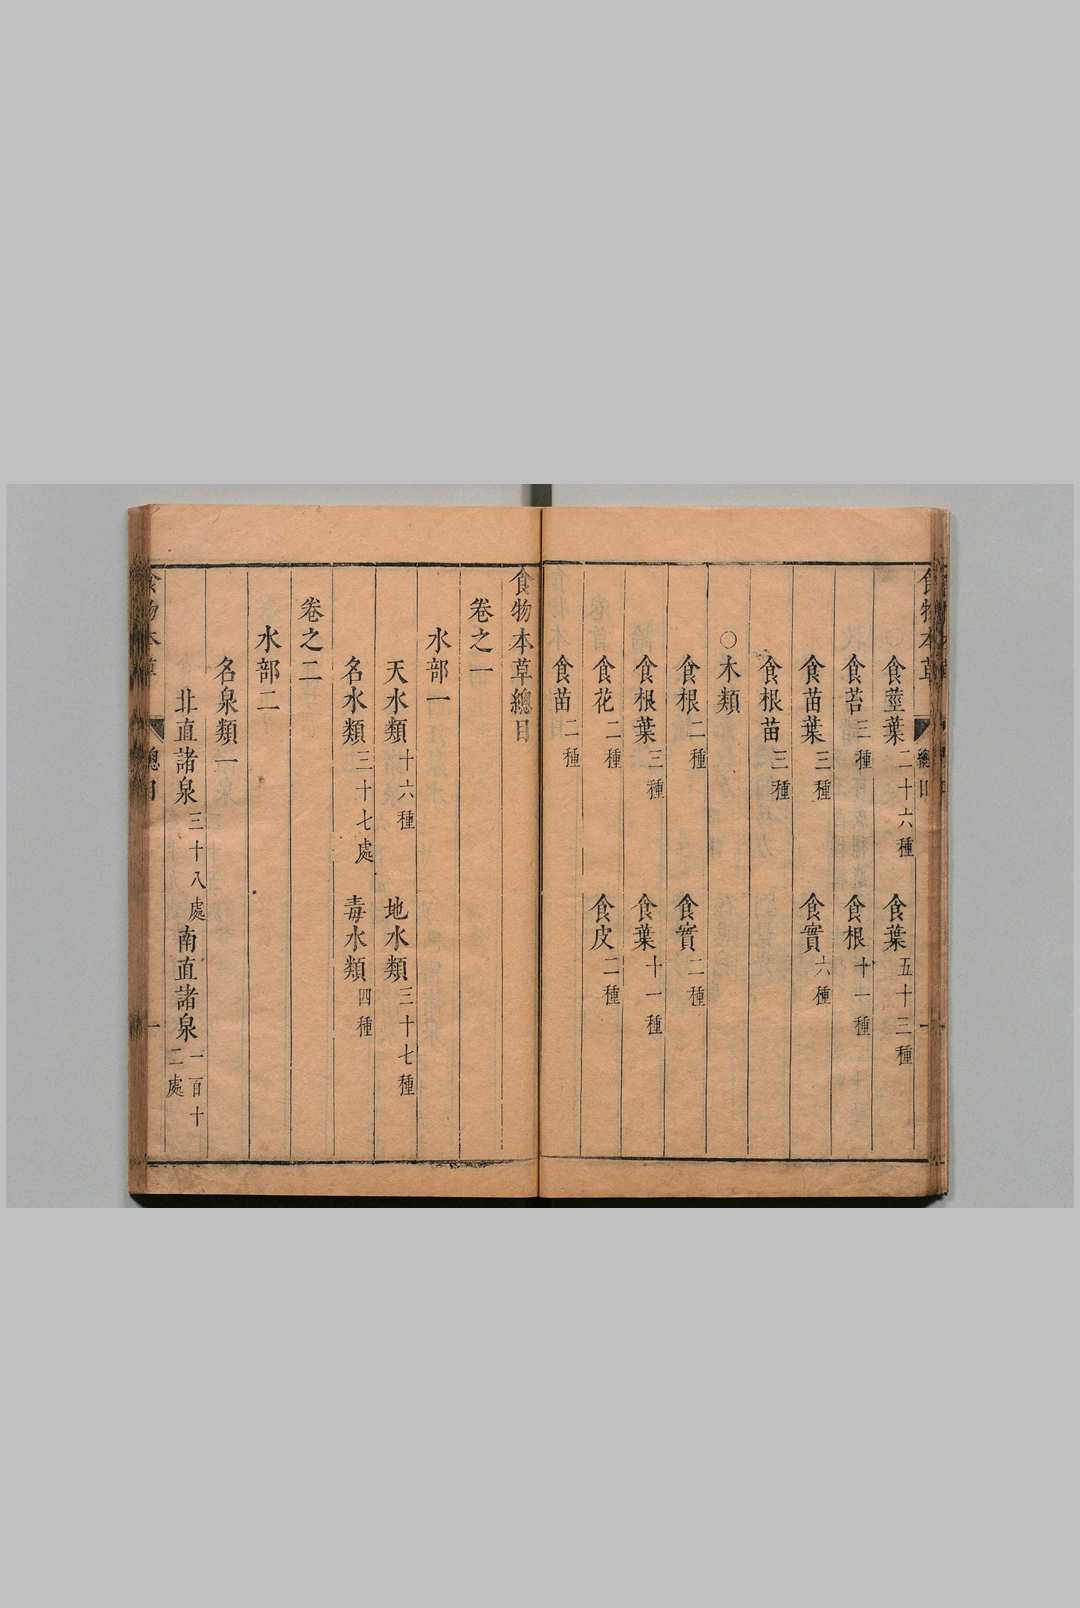 食物本草 總目 一
食莖葉二十六種 食葉五十三種
食苔三種 食根十一種
食苗葉三種 食實六種
食根苗三種
○木類
食根二種 食實二種
食根葉三種 食葉十一種
食花二種 食皮二種
食苗二種
食物本草總目
卷之一
水部一
天水類十六種 地水類三十七種
名水類三十七處 毒水類四種
卷之二
水部二
名泉類一
北直諸泉三十八處 南直諸泉一百十二處
食物本草 總目 一